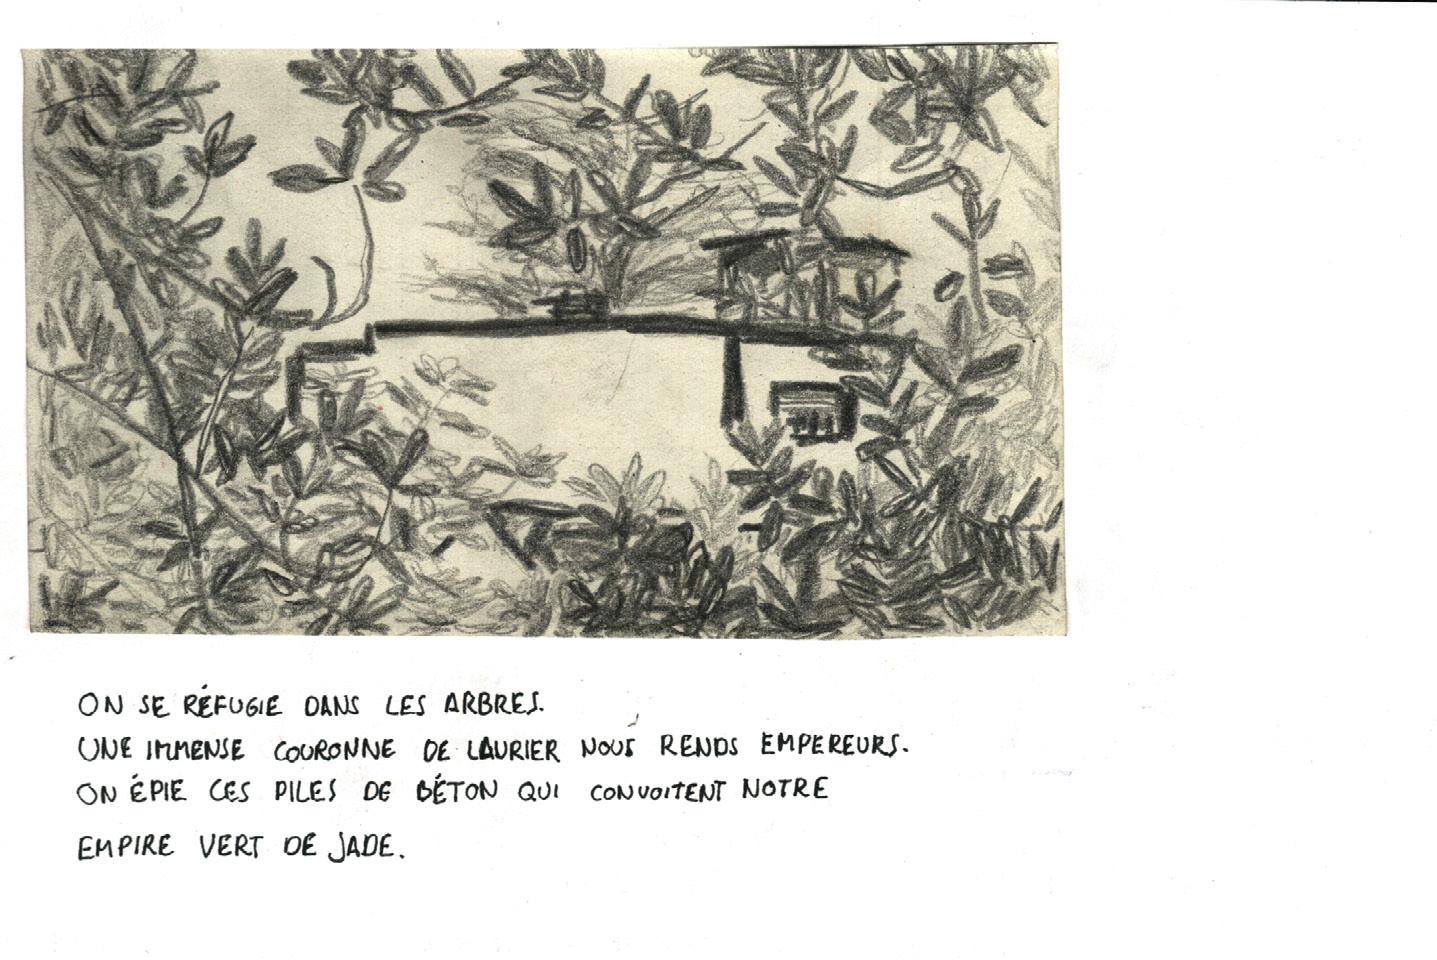 ON SE RÉFUGIE DANS LES ARBRES.
UNE IMMENSE COURONNE DE LAURIER NOUS RENDS EMPEREURS.
ON ÉPIE CES PILES DE BÉTON QUI CONVOITENT NOTRE
EMPIRE VERT DE JADE.